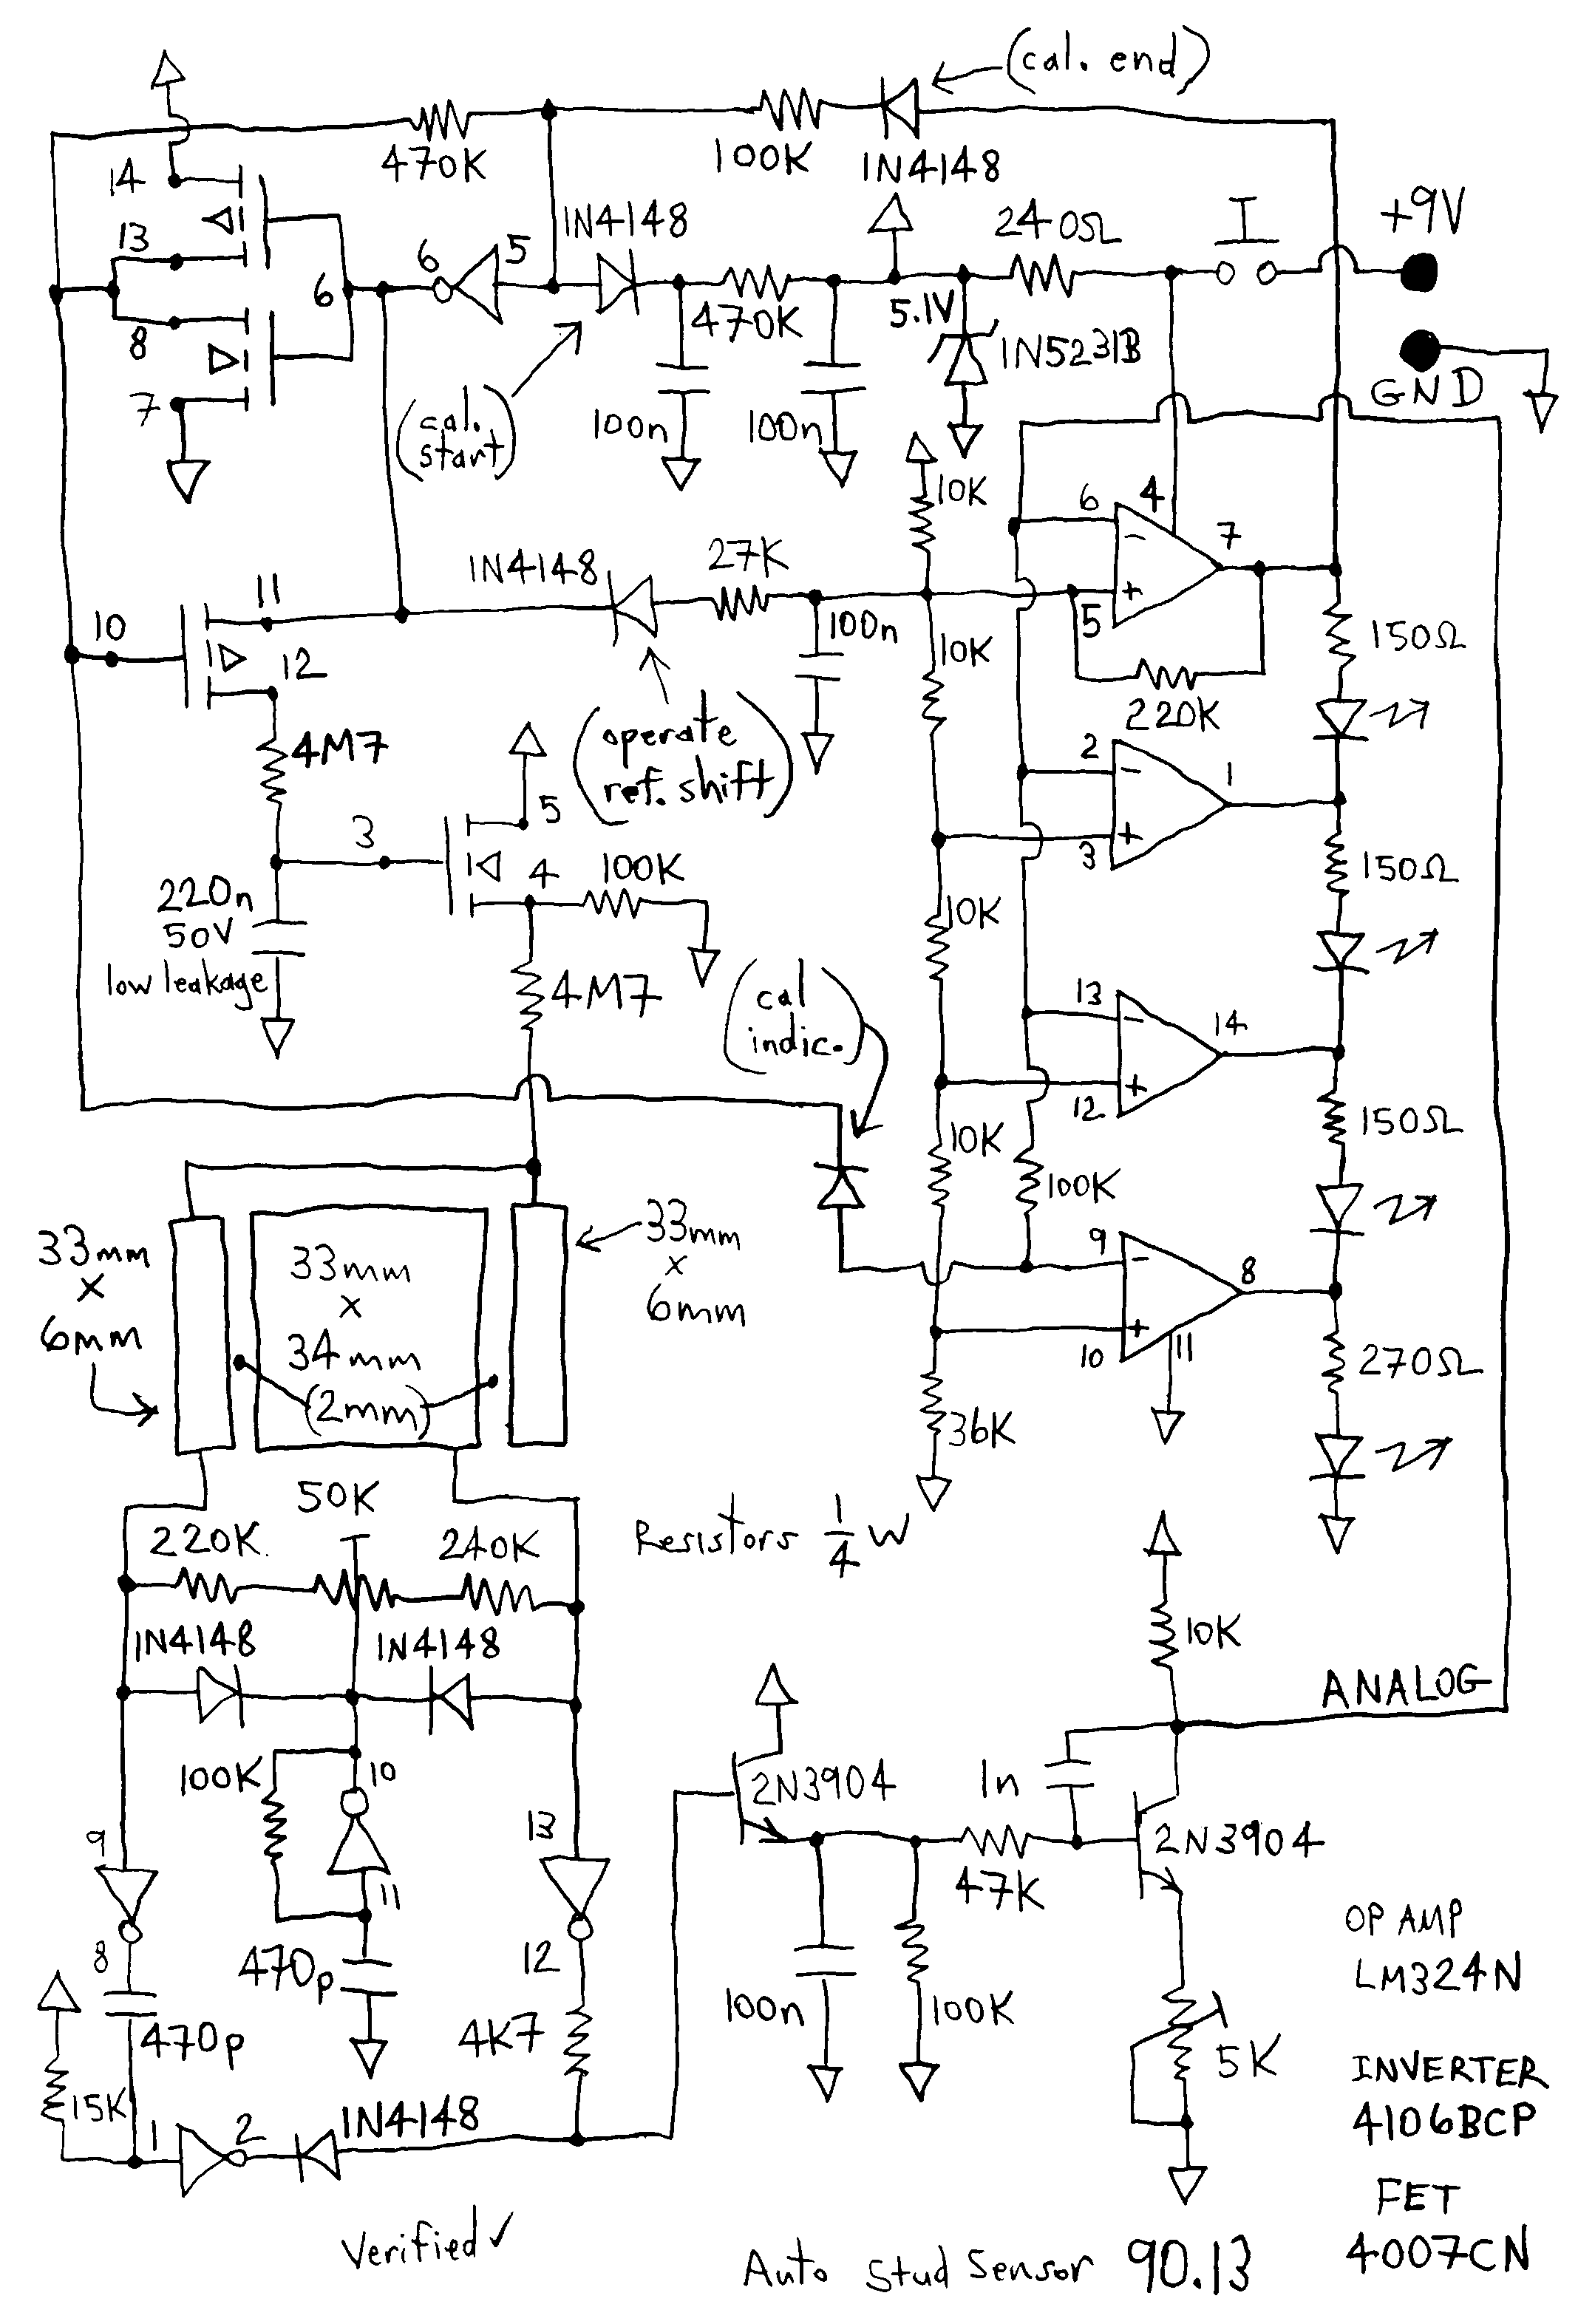 (cal. end)
470K
100K
1N4148
14
13
8
7
6
6
5
1N4148
470K
100n
100n
(cal. start)
5.1V
240Ω
I
+9V
1N5231B
GND
10K
6
4
7
5
220K
150Ω
10
11
12
1N4148
27K
100n
10K
(operate
ref. shift)
4M7
3
5
4
100K
220n
50V
low leakage
4M7
2
1
3
150Ω
10K
(cal
indic.)
13
14
12
150Ω
10K
100K
9
8
10
11
270Ω
36K
33mm
x
6mm
33mm
x
34mm
(2mm)
33mm
x
6mm
50K
220K
240K
Resistors 1/4 W
1N4148
1N4148
10K
ANALOG
100K
10
11
9
8
13
12
470p
470p
4K7
15K
1
2
1N4148
2N3904
1n
47K
2N3904
100n
100K
5K
OP AMP
LM324N
INVERTER
4106BCP
FET
4007CN
Verified ✓
Auto Stud Sensor 90.13